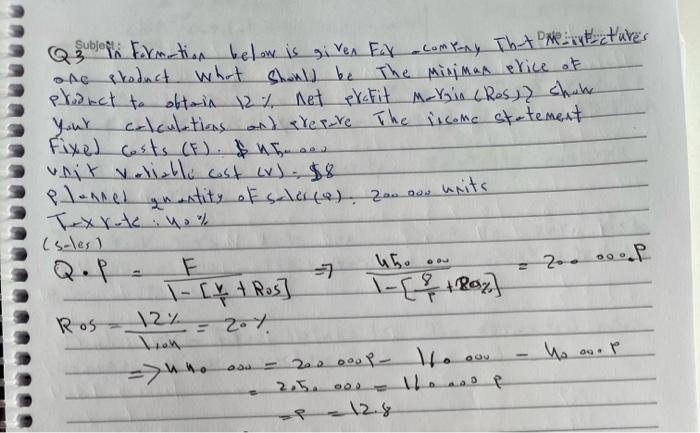 Subject: Date:
Q3 In Formation below is given For a company That Manufactures
one product. What should be The Minimum price of
product to obtain 12% Net profit Margin (Ros)? show
your calculations and prepare The income statement
Fixed costs (F). $ 450 000
unit variable cost (v). $8
planned quantity of sales (Q). 200 000 units
Tax rate: 40%
(sales)
Q.P = F / 1-[v/P + Ros] => 450 000 / 1-[8/P + Ros%] = 200 000.P
Ros = 12% / = 20%
= 200 000 P - - 40 000.P
= 2.05. 000 = P
= P = 12.8